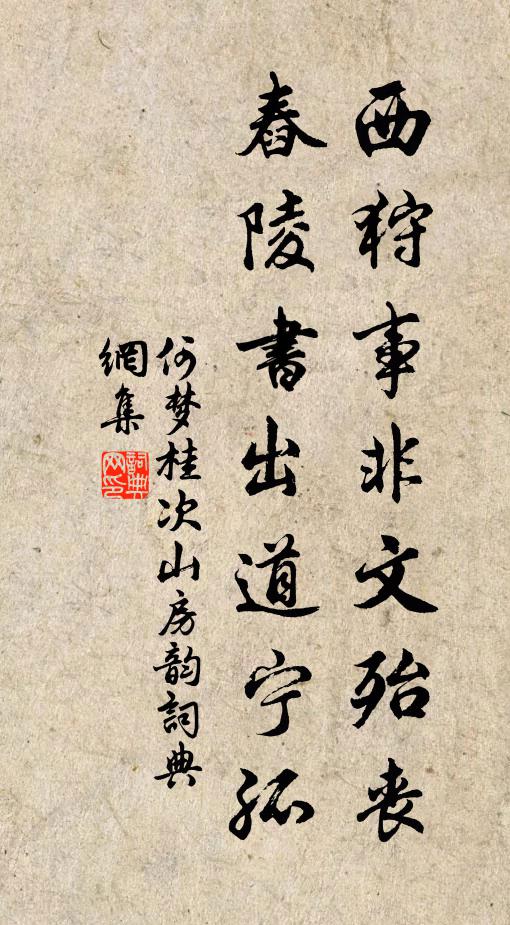 西狩事非文殆丧
舂陵書出道宁孤
何梦桂次山房韵詞典
網集
詞典
网印